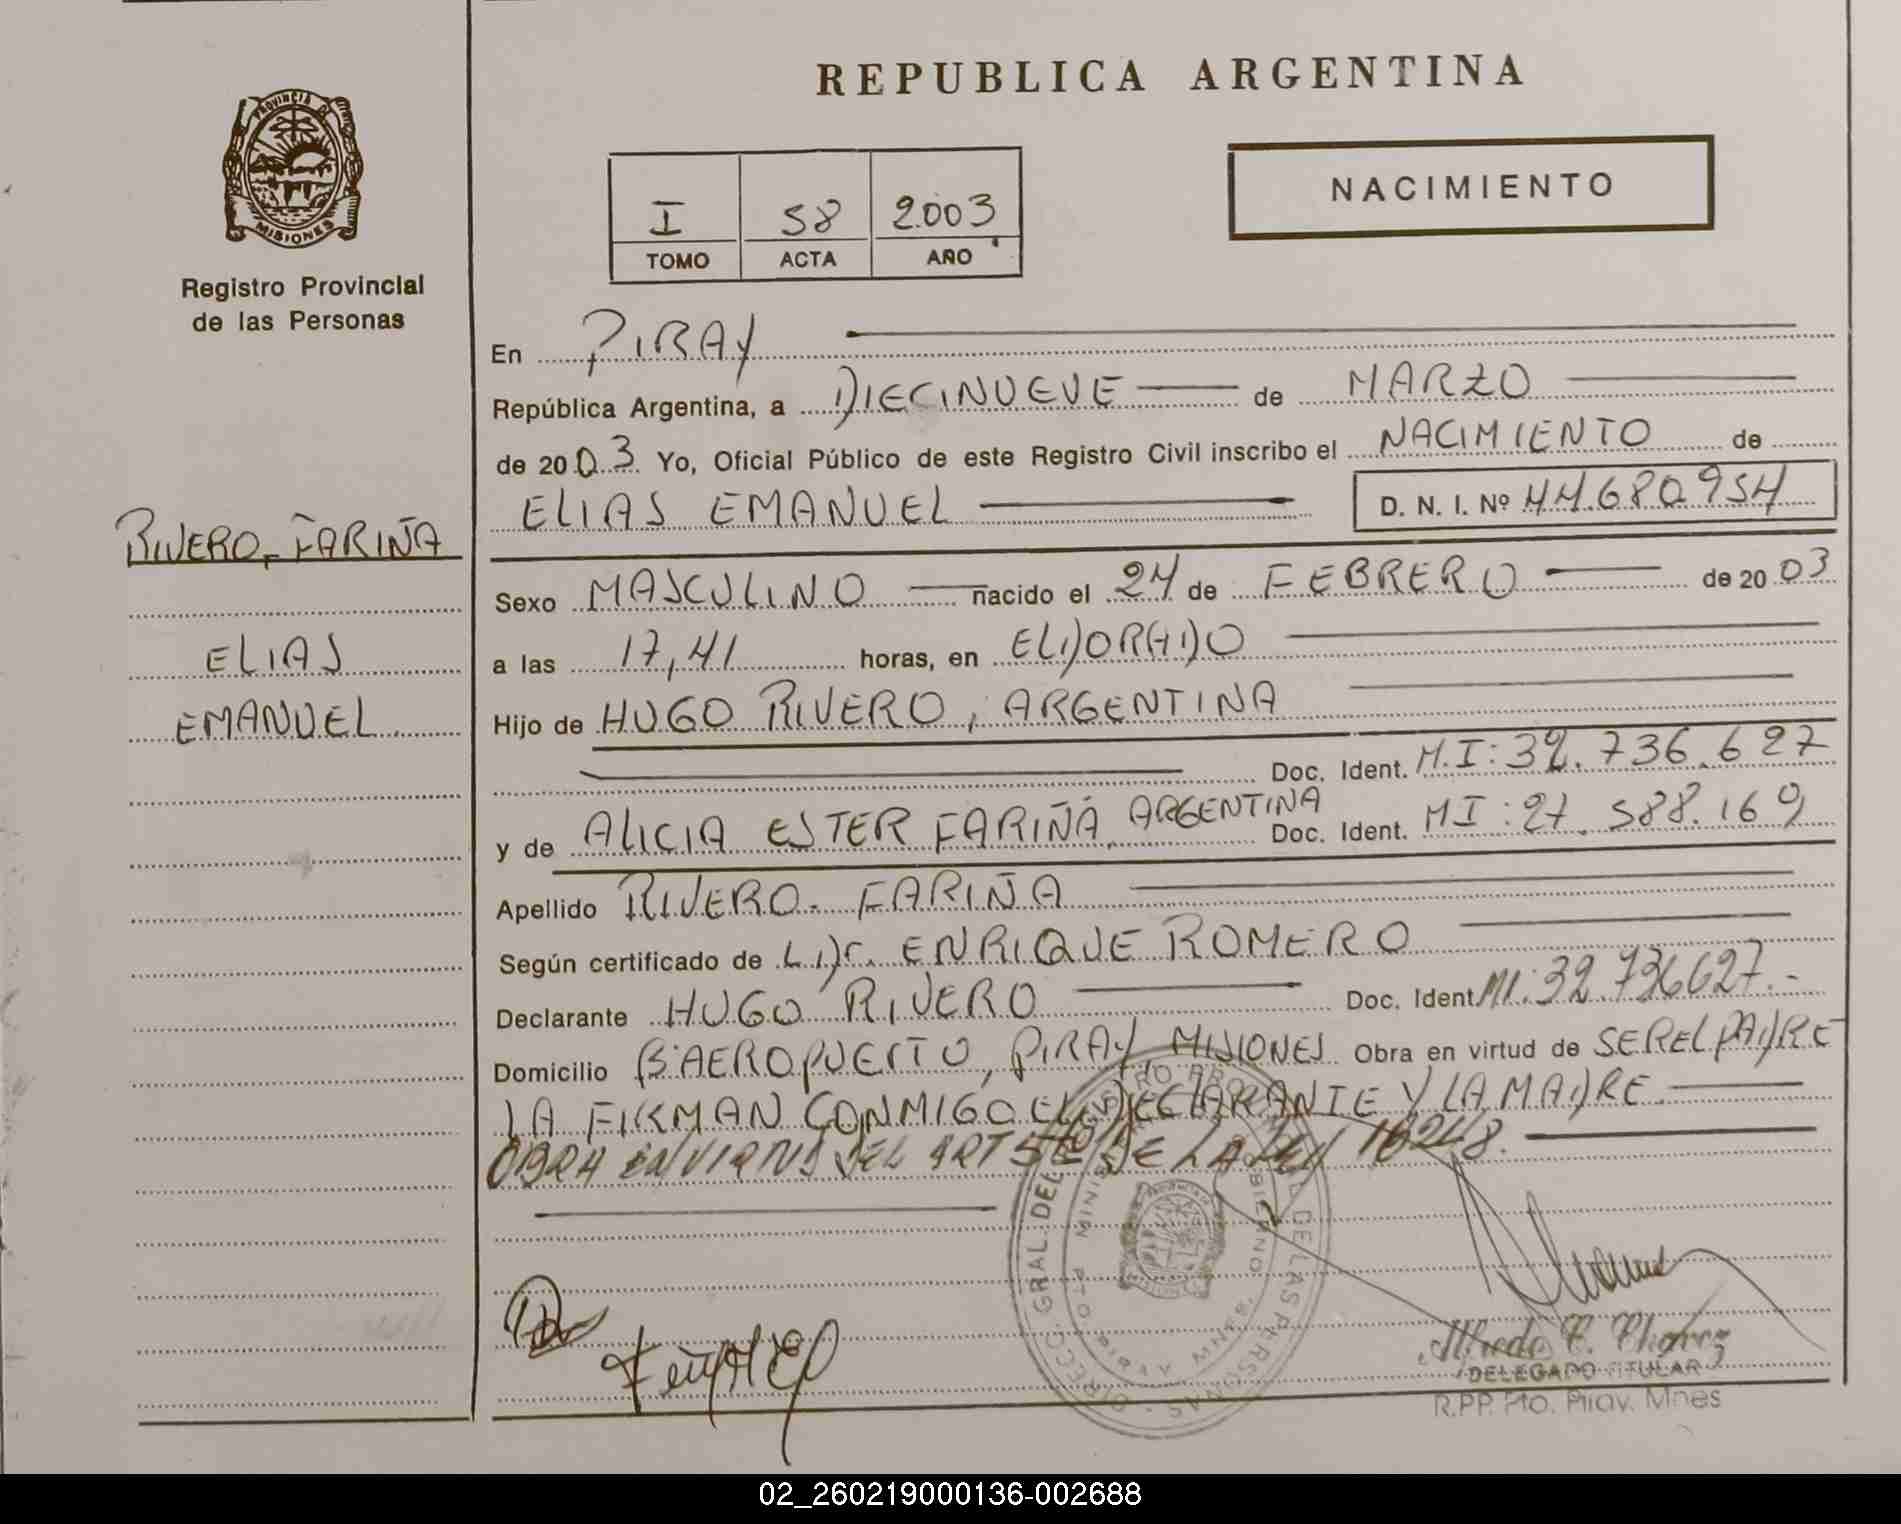 REPUBLICA ARGENTINA
PROVINCIA DE MISIONES
Registro Provincial
de las Personas
NACIMIENTO
I 58 2003
TOMO ACTA AÑO
En PIRAY
República Argentina, a DIECINUEVE de MARZO
de 2003 Yo, Oficial Público de este Registro Civil inscribo el NACIMIENTO de
ELIAS EMANUEL D. N. I. Nº 44.680.954
RIVERO, FARIÑA
ELIAS
EMANUEL
Sexo MASCULINO nacido el 24 de FEBRERO de 2003
a las 17,41 horas, en ELDORADO
Hijo de HUGO RIVERO, ARGENTINA
Doc. Ident. M.I: 32.736.627
y de ALICIA ESTER FARIÑA, ARGENTINA Doc. Ident. MI: 27.588.169
Apellido RIVERO. FARIÑA
Según certificado de ENRIQUE ROMERO
Declarante HUGO RIVERO Doc. Ident MI: 32.736627.-
Domicilio Bº AEROPUERTO, PIRAY, MISIONES Obra en virtud de SER EL PADRE
FIRMAN CONMIGO EL DECLARANTE Y LA MADRE.
OBRA DEL ART 5º DE LA LEY 18248.
DIRECC. GRAL. DEL REGISTRO PROVINCIAL DE LAS PERSONAS
Alfredo Chavez
DELEGADO TITULAR
R.P.P. Pto. Piray. Mnes
02_260219000136-002688